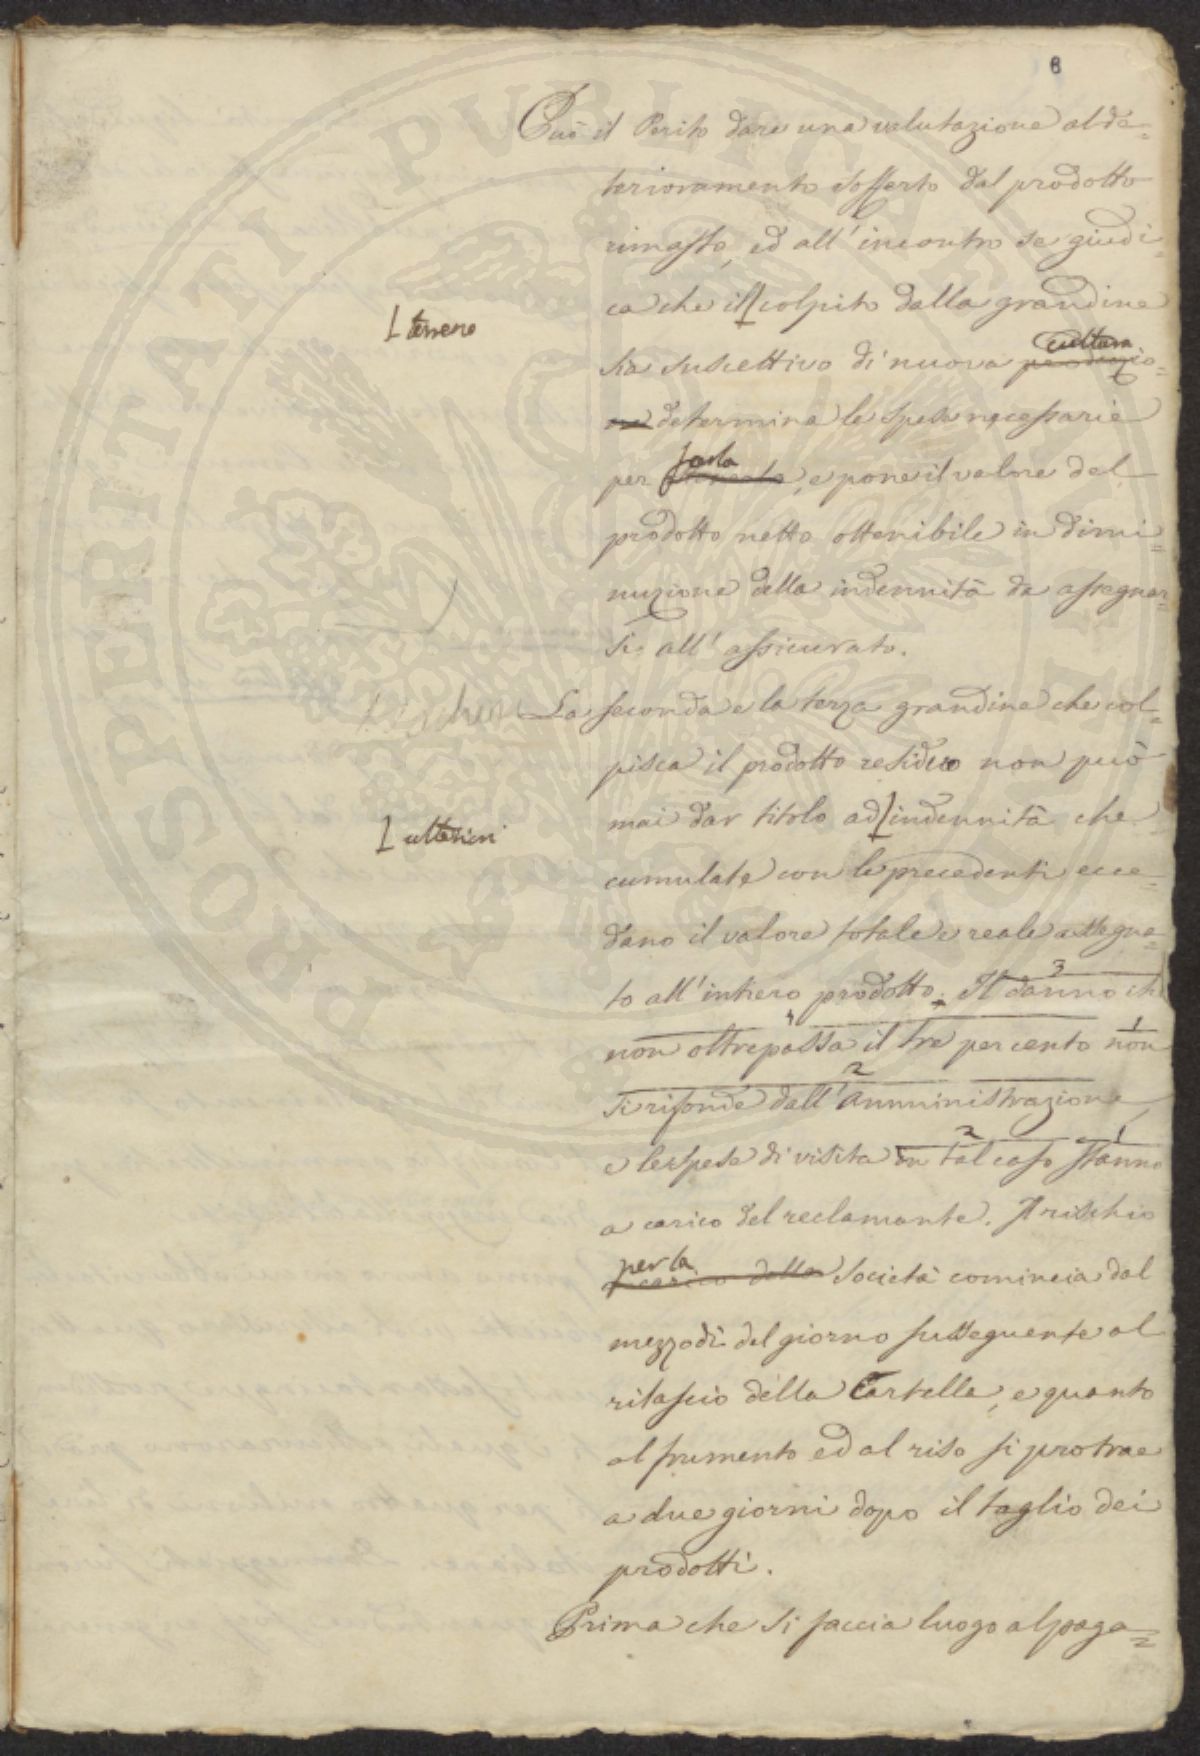 6
Può il Perito dare una valutazione al de=
terioramento sofferto dal prodotto
rimasto, ed all'incontro se giudi=
ca che il [ colpito dalla grandine
[ terreno
cultura
sia suscettivo di nuova produzio=
ne determina le spese necessarie
farla
per , e pone il valore del
prodotto netto ottenibile in dimi=
nuzione della indennità da assegnar=
si all'assicurato.
La seconda e la terza grandine che col=
pisca il prodotto residuo non può
mai dar titolo ad [ indennità che
[ ulteriori
cumulate con le precedenti ecce=
dano il valore totale e reale assegna=
to all'intiero prodotto. Il danno ch
3
non oltrepassa il tre per cento non
4 1
si rifonde dall'Amministrazione,
2
e le spese di visita in tal caso stanno
2 1
a carico del reclamante. Il rischio
per la
a carico della Società comincia dal
mezzodì del giorno susseguente al
rilascio della Cartella, e quanto
al frumento ed al riso si protrae
a due giorni dopo il taglio dei
prodotti.
Prima che si faccia luogo al paga=
PROSPERITATI PUBLICAE